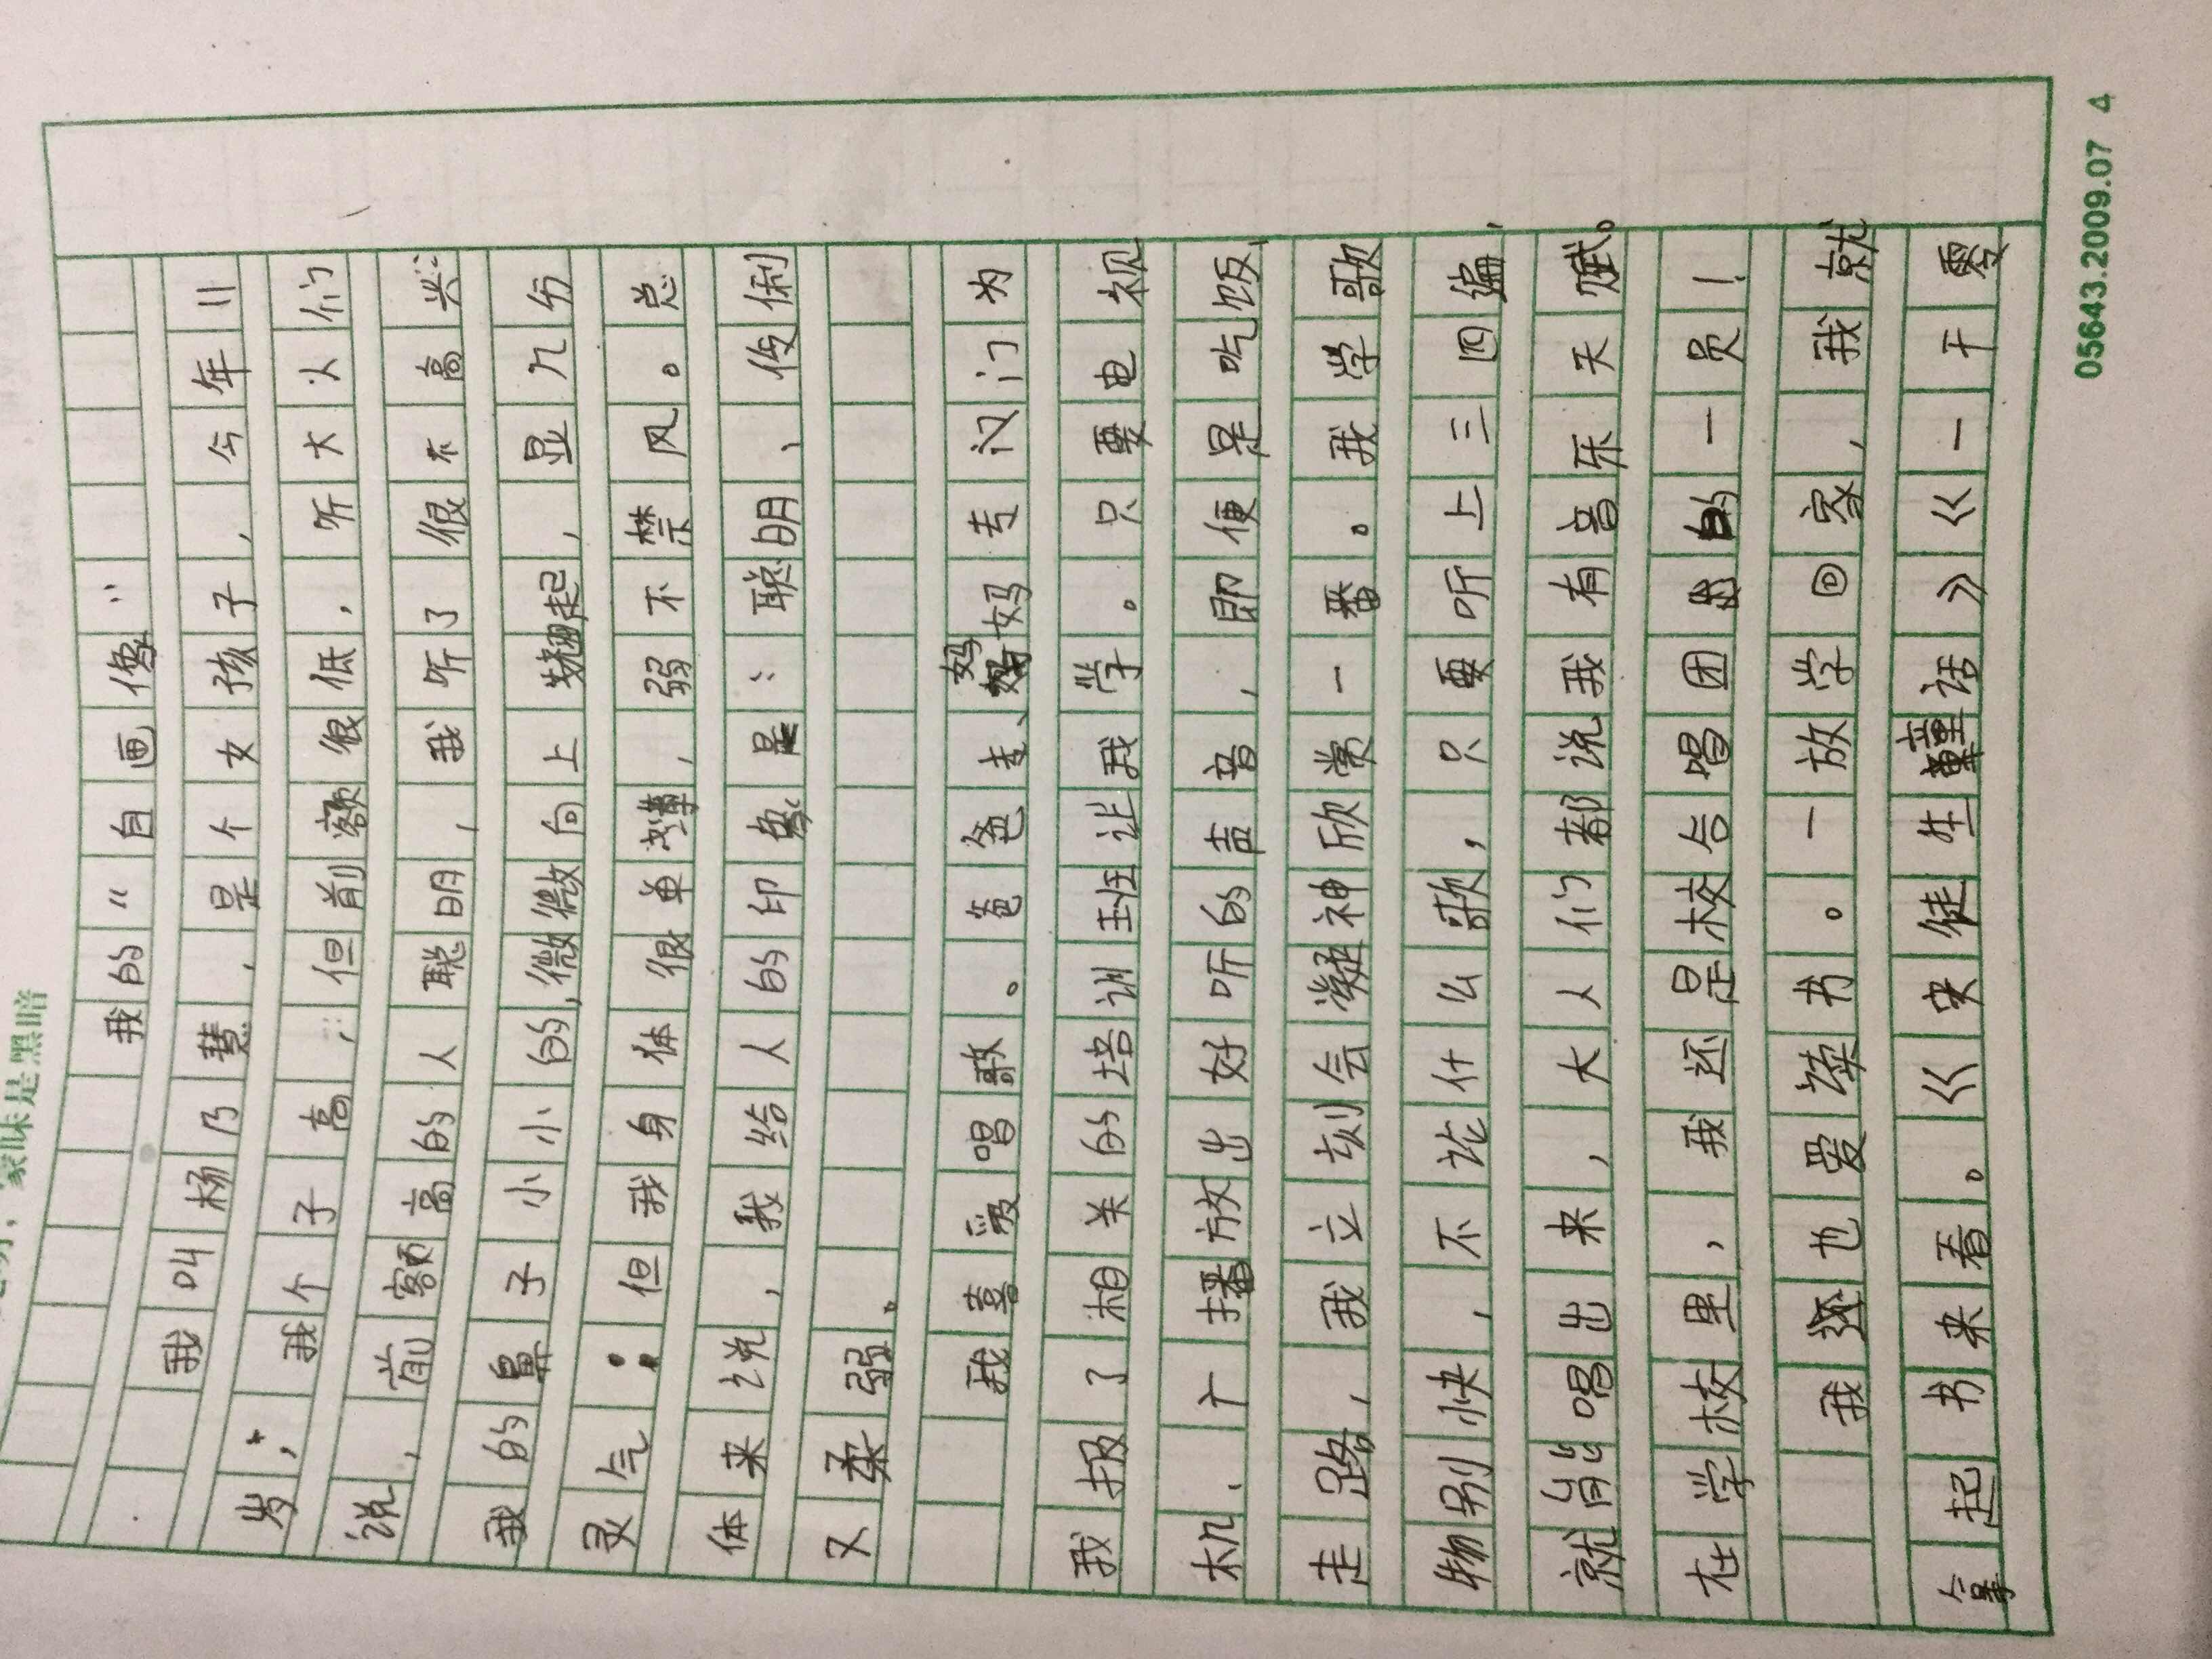 家味是黑暗
我的“自画像”
我叫杨乃慧,是个女孩子,今年11
岁,我个子高,但前额很低,听大人们
说,前额高的人聪明,我听了很不高兴;
我的鼻子小小的,微微向上翘起,显几分
灵气;但我身体很单薄,弱不禁风。总
体来说,我给人的印象是:聪明、伶俐
又柔弱。
我喜爱唱歌。爸爸、妈妈专门为
我报了相关的培训班让我学。只要电视
机、广播放出好听的声音,即便是吃饭、
走路,我立刻会凝神欣赏一番。我学歌
特别快,不论什么歌,只要听上三四遍,
就能唱出来,大人们都说我有音乐天赋。
在学校里,我还是校合唱团的一员!
我还也爱读书。一放学回家,我就
拿起书来看。《安徒生童话》《一千零
05643.2009.07 4